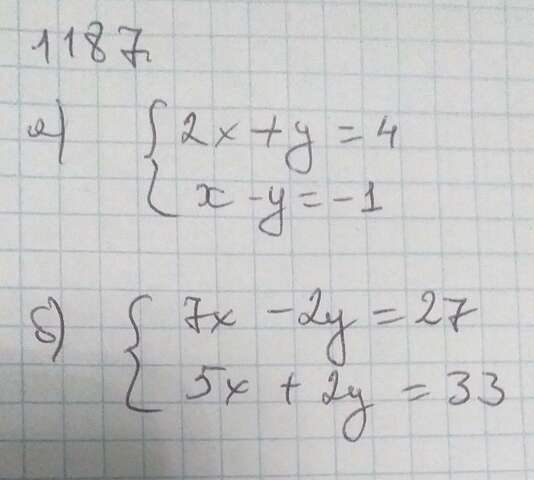 1187.
а) { 2x + y = 4
x - y = -1
б) { 7x - 2y = 27
5x + 2y = 33